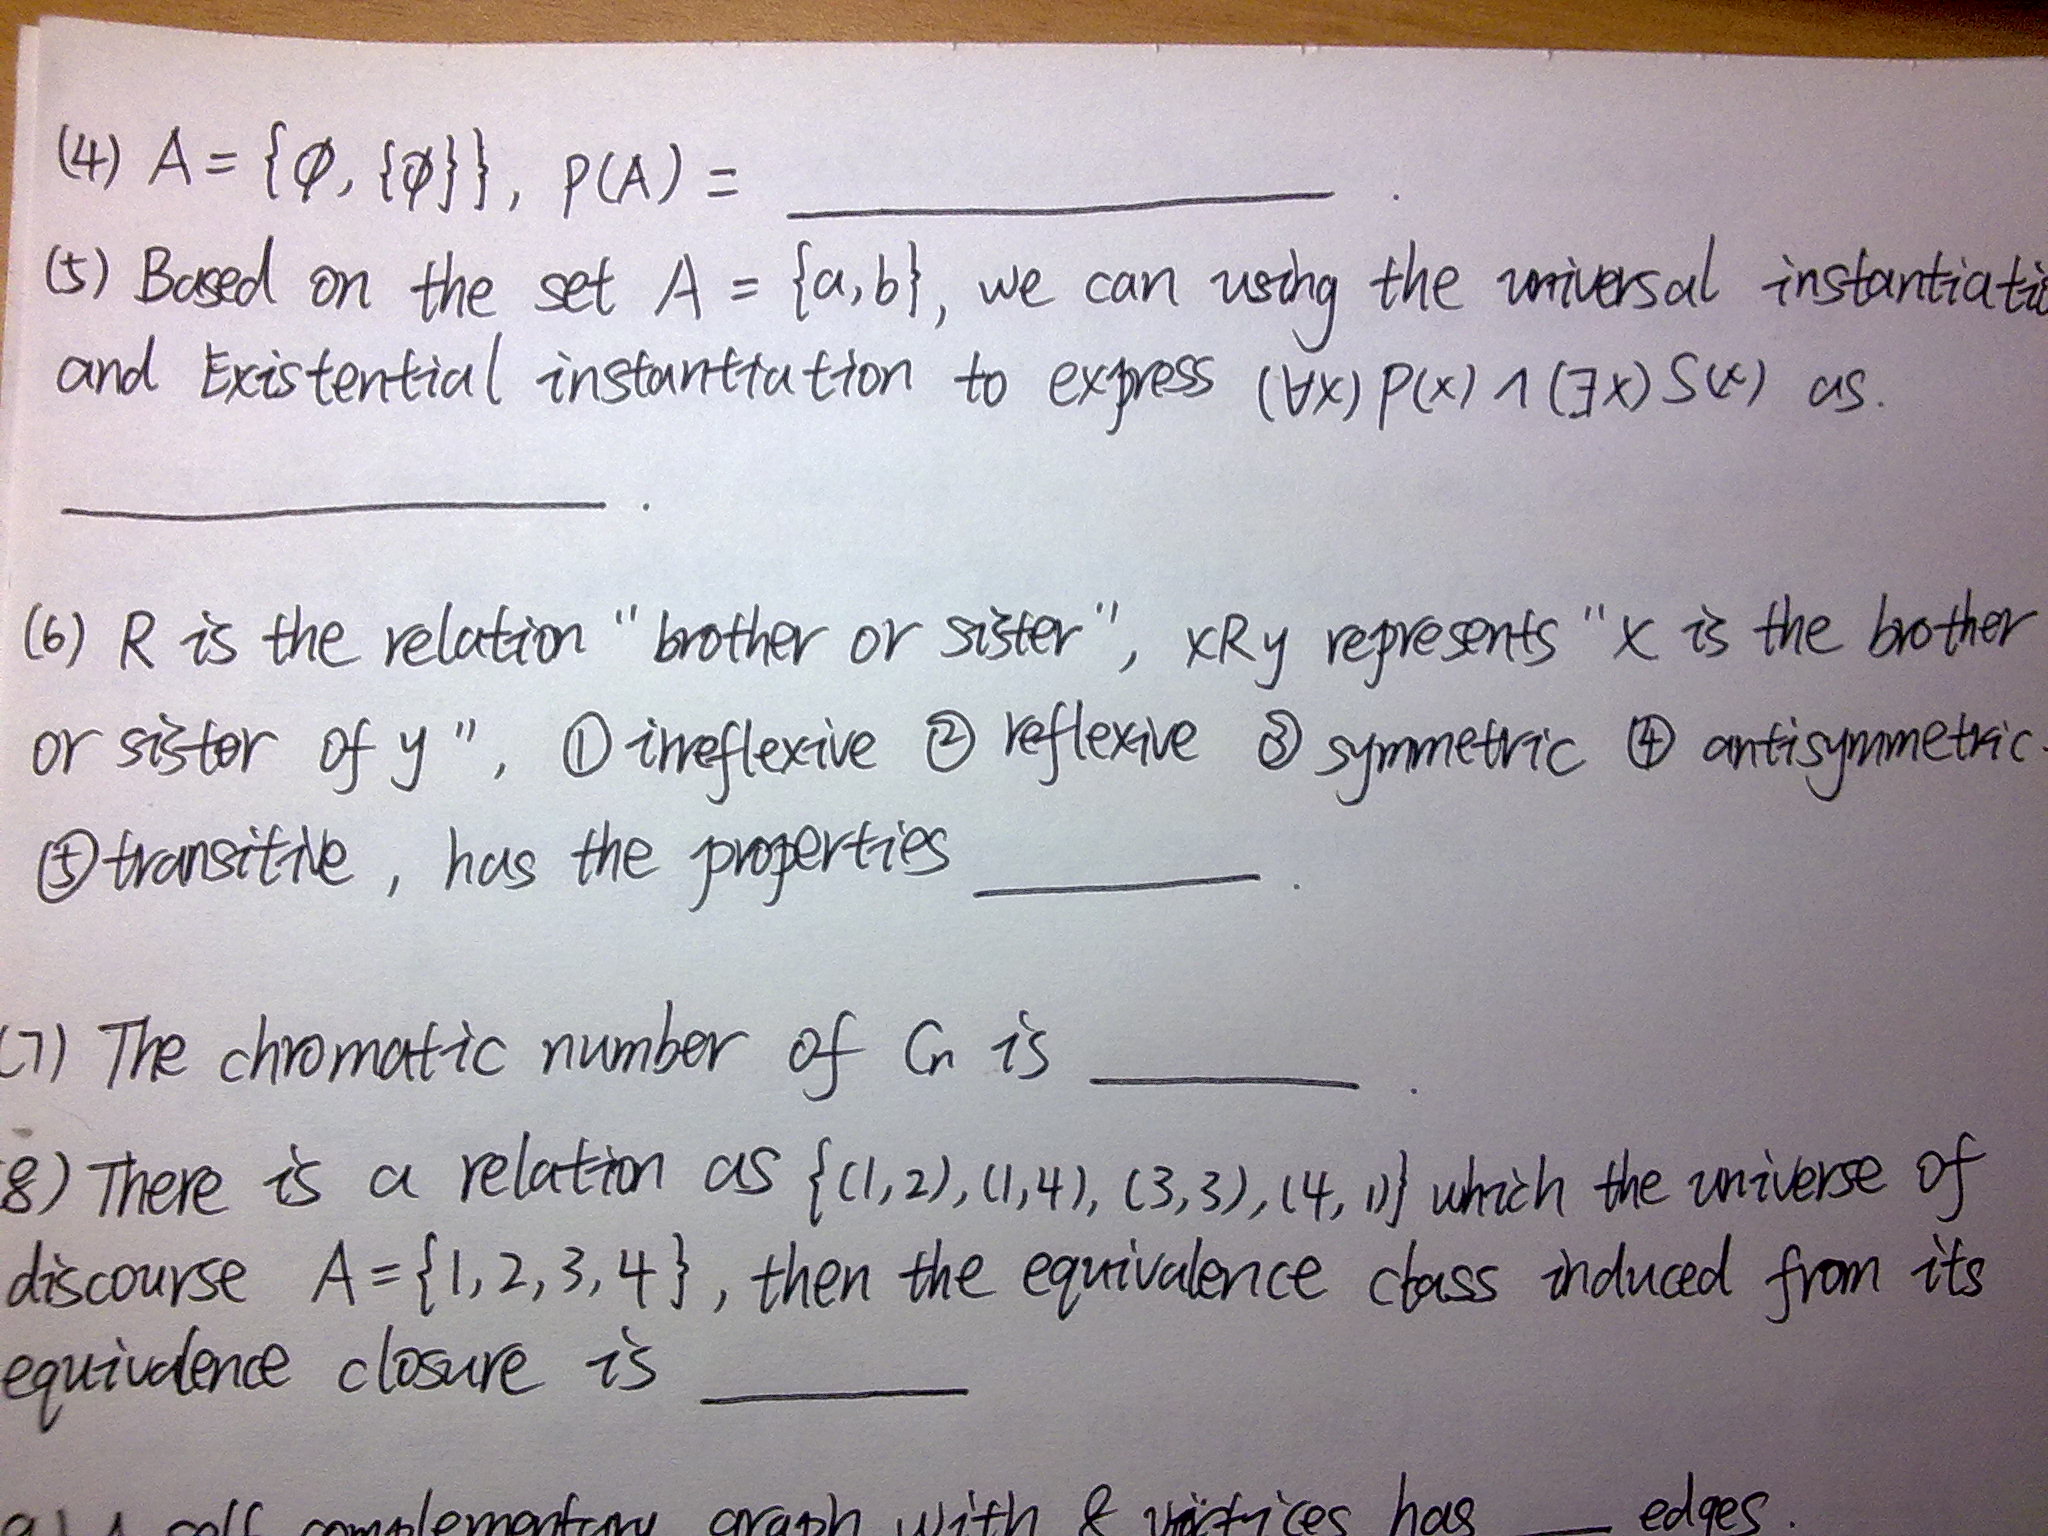 (4) A = {∅, {∅}}, P(A) = ____________ .
(5) Based on the set A = {a,b}, we can using the universal instantiatio
and Existential instantiation to express (∀x) P(x) ∧ (∃x) S(x) as.
____________ .
(6) R is the relation "brother or sister", xRy represents "x is the brother
or sister of y", ① irreflexive ② reflexive ③ symmetric ④ antisymmetric
⑤ transitive, has the properties ______ .
(7) The chromatic number of Cn is ______ .
8) There is a relation as {(1,2),(1,4),(3,3),(4,1)} which the universe of
discourse A={1,2,3,4}, then the equivalence class induced from its
equivalence closure is ______
9) A self complementary graph with 8 vertices has ___ edges.